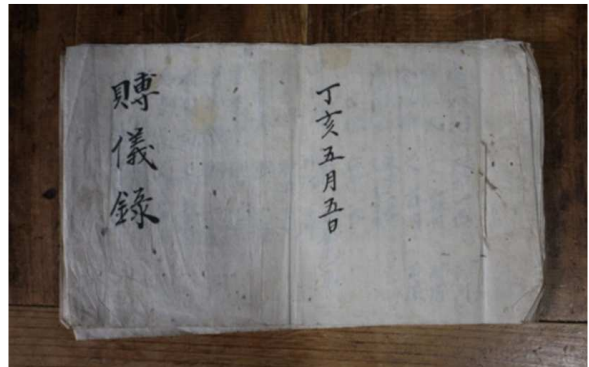 丁亥五月五日
賻儀錄